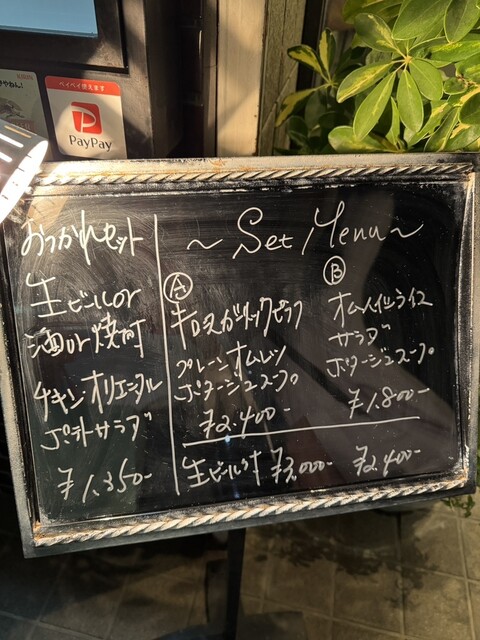 ペイペイ使えます
PayPay
おつかれセット
生ビールor
酒or焼酎
チキンオリエンタル
ポテトサラダ
¥1,350-
~Set Menu~
A
ガーリックピラフ
プレーンオムレツ
ポタージュスープ
¥2,400-
B
オムハイシライス
サラダ
ポタージュスープ
¥1,800-
生ビール付 ¥3,000- ¥2,400-